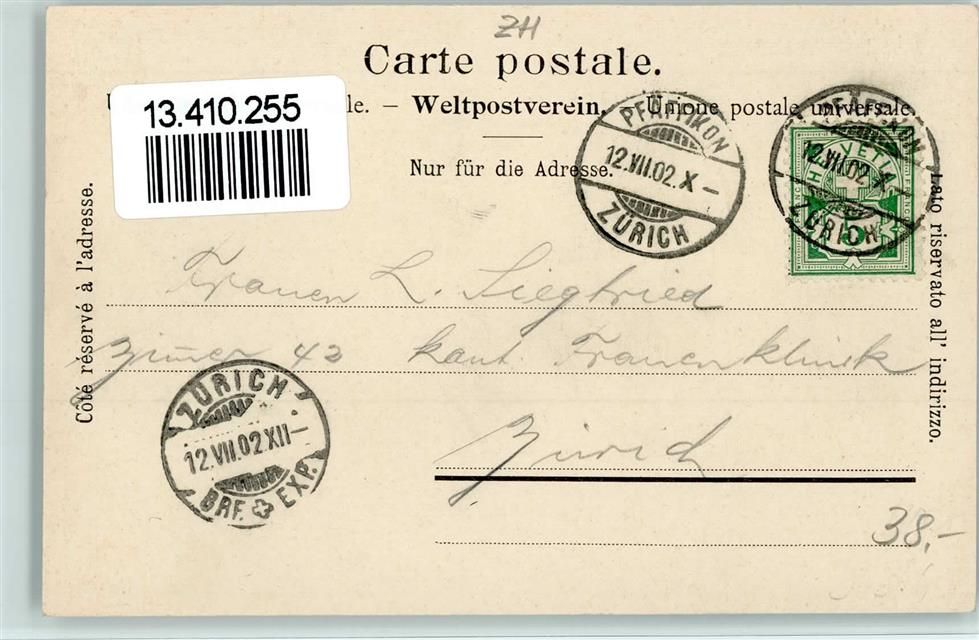 ZH
Carte postale.
13.410.255
le. – Weltpostverein. Unione postale universale.
Nur für die Adresse.
PFÄFFIKON
12.VII.02.X–
ZÜRICH
PFÄFFIKON
12.VII.02.X
ZÜRICH
HELVETIA
5
Côté réservé à l'adresse.
Lato riservato all' indirizzo.
Frauen L. Siegfried
Zimmer 42 kant. Frauenklinik
Zürich
ZÜRICH
12.VII.02.XII–
BRF. EXP.
38,–